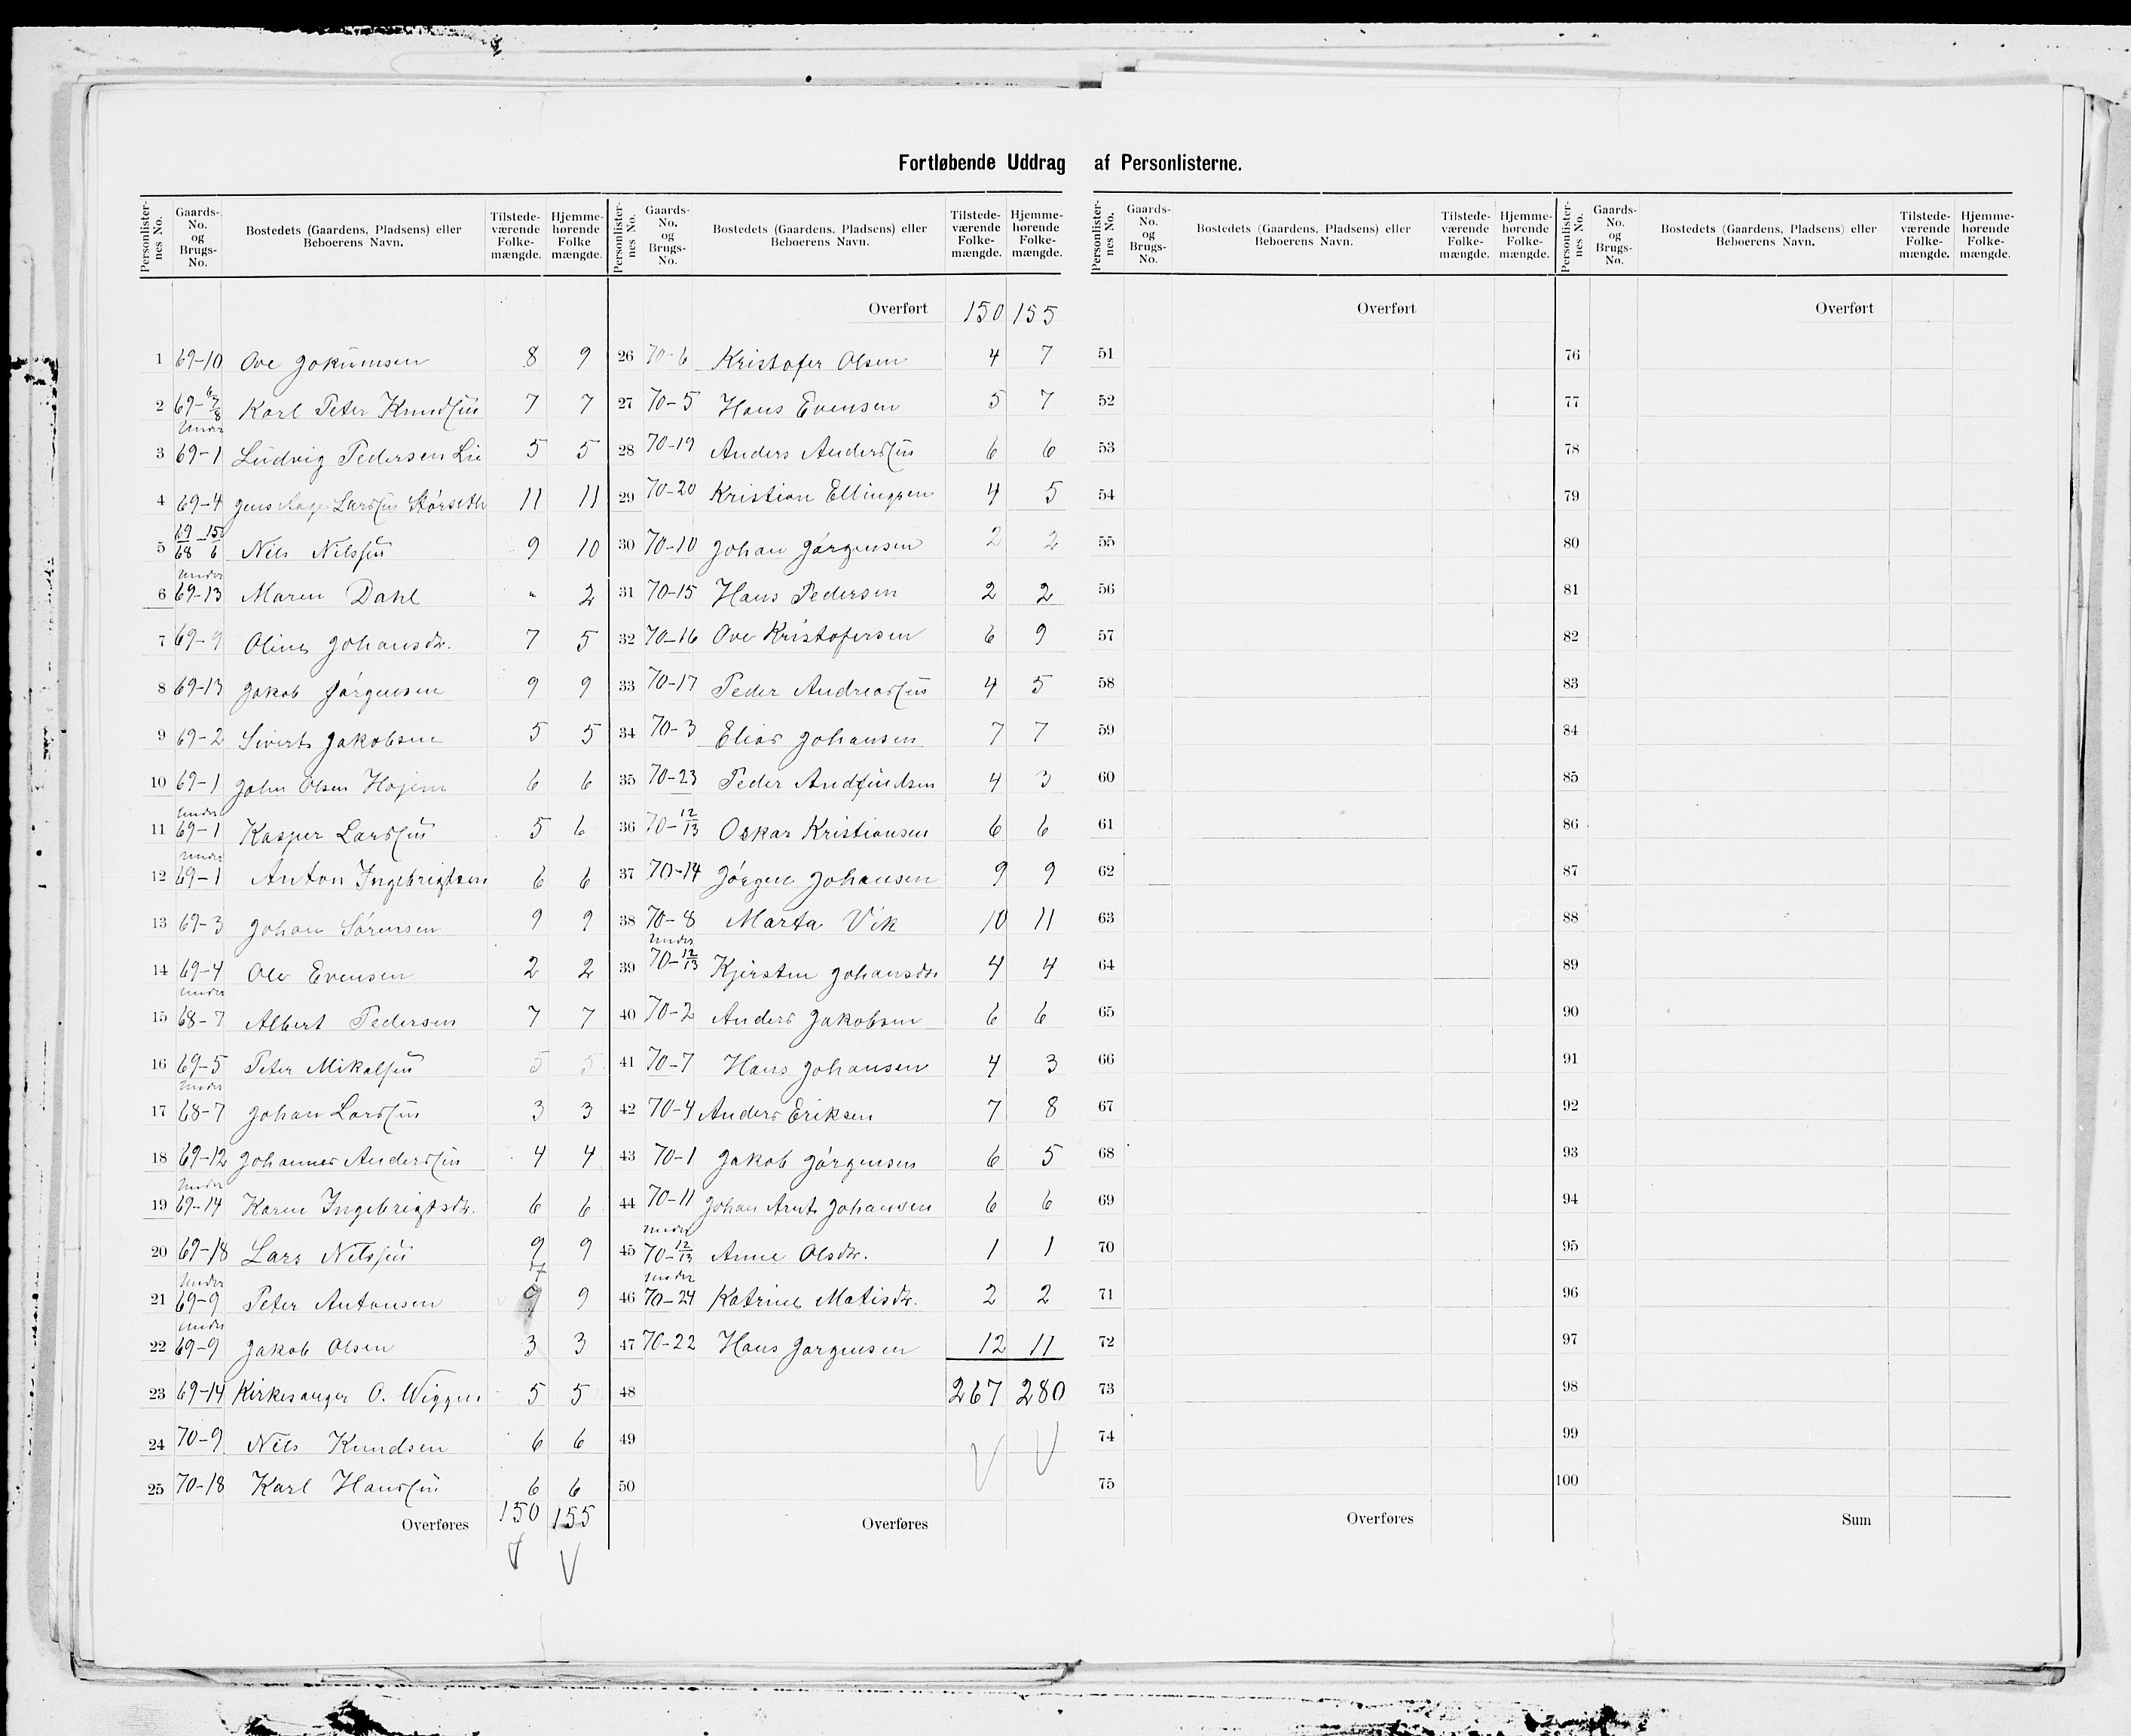 Fortløbende Uddrag af Personlisterne.
Personlister-nes No. Gaards-No. og Brugs-No. Bostedets (Gaardens, Pladsens) eller Beboerens Navn. Tilstede-værende Folke-mængde. Hjemme-hørende Folke mængde.
1 69-10 Ove Jokumsen 8 9
2 69-6/7/8 Karl Peter Knudsen 7 7
3 Under 69-1 Ludvig Pedersen Lie 5 5
4 69-4 Jens Aage Larssen Størseth 11 11
5 69-15 68 6 Nils Nilssen 9 10
6 Under 69-13 Maren Dahl " 2
7 69-9 Oline Johansdtr. 7 5
8 69-13 Jakob Jørgensen 9 9
9 69-2 Sivert Jakobsen 5 5
10 69-1 John Olsen Hojem 6 6
11 Under 69-1 Kasper Larssen 5 6
12 Under 69-1 Anton Ingebrigtsen 6 6
13 69-3 Johan Sørensen 9 9
14 69-4 Ole Evensen 2 2
15 Under 68-7 Albert Pedersen 7 7
16 69-5 Peter Mikalsen 5 5
17 Under 68-7 Johan Larssen 3 3
18 69-12 Johannes Anderssen 4 4
19 Under 69-14 Karen Ingebrigtsdtr. 6 6
20 69-18 Lars Nilssen 9 9
21 Under 69-9 Peter Antonsen 7 9 9
22 Under 69-9 Jakob Olsen 3 3
23 69-14 Kirkesanger O. Wiggen 5 5
24 70-9 Nils Knudsen 6 6
25 70-18 Karl Hanssen 6 6
Overføres 150 155
Personlister-nes No. Gaards-No. og Brugs-No. Bostedets (Gaardens, Pladsens) eller Beboerens Navn. Tilstede-værende Folke-mængde. Hjemme-hørende Folke-mængde.
Overført 150 155
26 70-6 Kristofer Olsen 4 7
27 70-5 Hans Evensen 5 7
28 70-19 Anders Anderssen 6 6
29 70-20 Kristian Ellingsen 4 5
30 70-10 Johan Jørgensen 2 2
31 70-15 Hans Pedersen 2 2
32 70-16 Ove Kristofersen 6 9
33 70-17 Peder Andreassen 4 5
34 70-3 Elias Johansen 7 7
35 70-23 Peder Andfindsen 4 3
36 70-12/13 Oskar Kristiansen 6 6
37 70-14 Jørgen Johansen 9 9
38 70-8 Marta Vik 10 11
39 Under 70-12/13 Kjersten Johansdtr. 4 4
40 70-2 Anders Jakobsen 6 6
41 70-7 Hans Johansen 4 3
42 70-4 Anders Eriksen 7 8
43 70-1 Jakob Jørgensen 6 5
44 70-11 Johan Arnt Johansen 6 6
45 Under 70-12/13 Anne Olsdtr. 1 1
46 Under 70-24 Katrine Matisdtr. 2 2
47 70-22 Hans Jørgensen 12 11
48 267 280
49
50
Overføres
Personlister-nes No. Gaards-No. og Brugs-No. Bostedets (Gaardens, Pladsens) eller Beboerens Navn. Tilstede-værende Folke-mængde. Hjemme-hørende Folke-mængde.
Overført
51
52
53
54
55
56
57
58
59
60
61
62
63
64
65
66
67
68
69
70
71
72
73
74
75
Overføres
Personlister-nes No. Gaards-No. og Brugs-No. Bostedets (Gaardens, Pladsens) eller Beboerens Navn. Tilstede-værende Folke-mængde. Hjemme-hørende Folke-mængde.
Overført
76
77
78
79
80
81
82
83
84
85
86
87
88
89
90
91
92
93
94
95
96
97
98
99
100
Sum